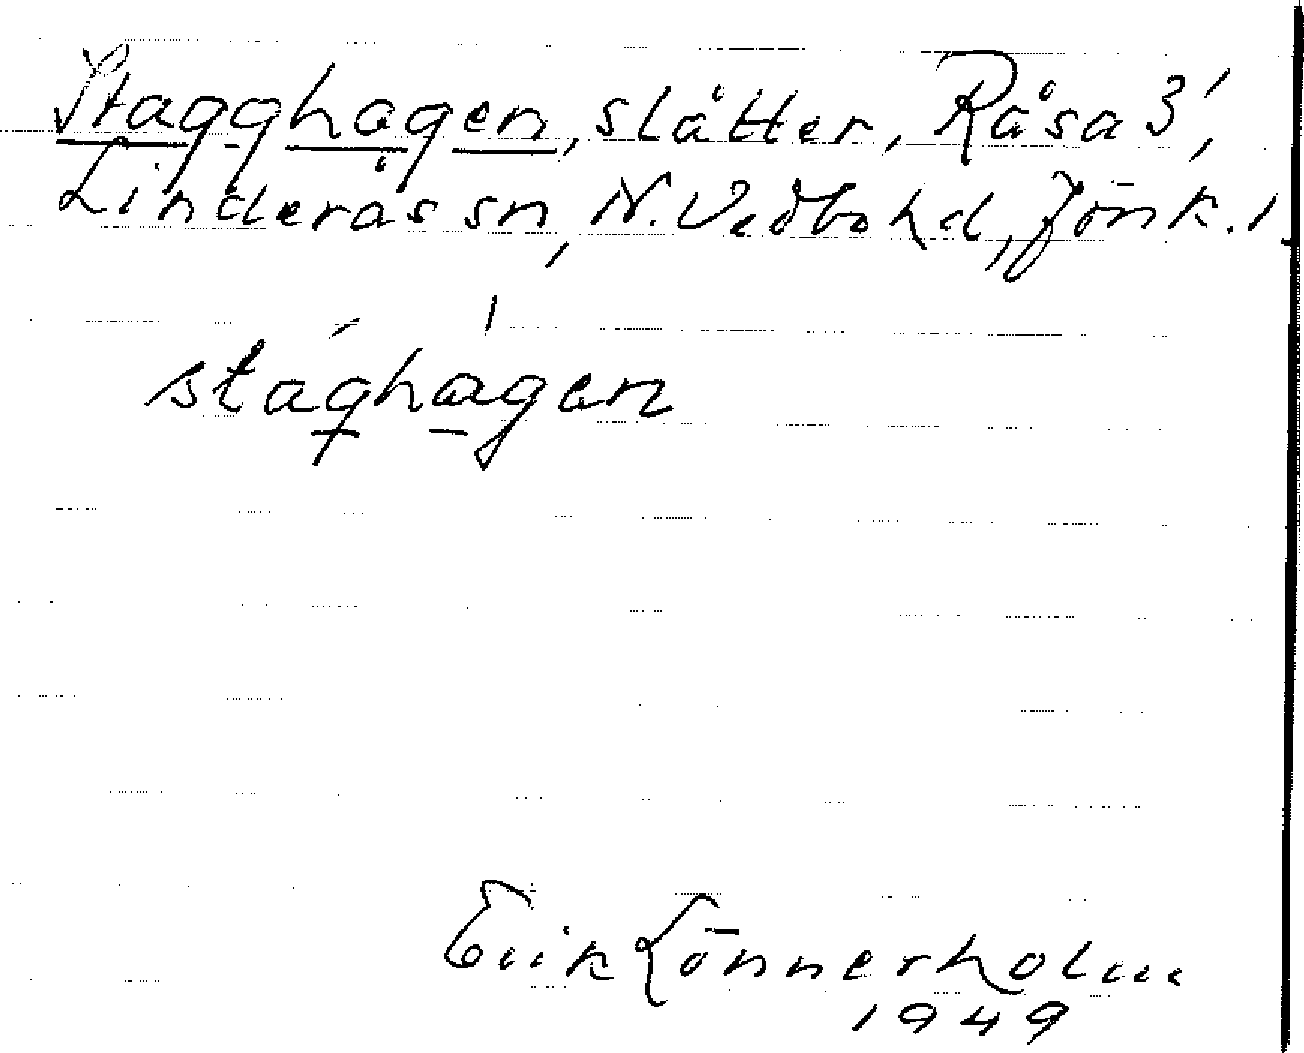 Stagghagen, slåtter, Råsa 3',
Linderås sn, N. Vedbo hd, Jönk. l
stag̠há̱gen
Erik Lönnerholm
1949